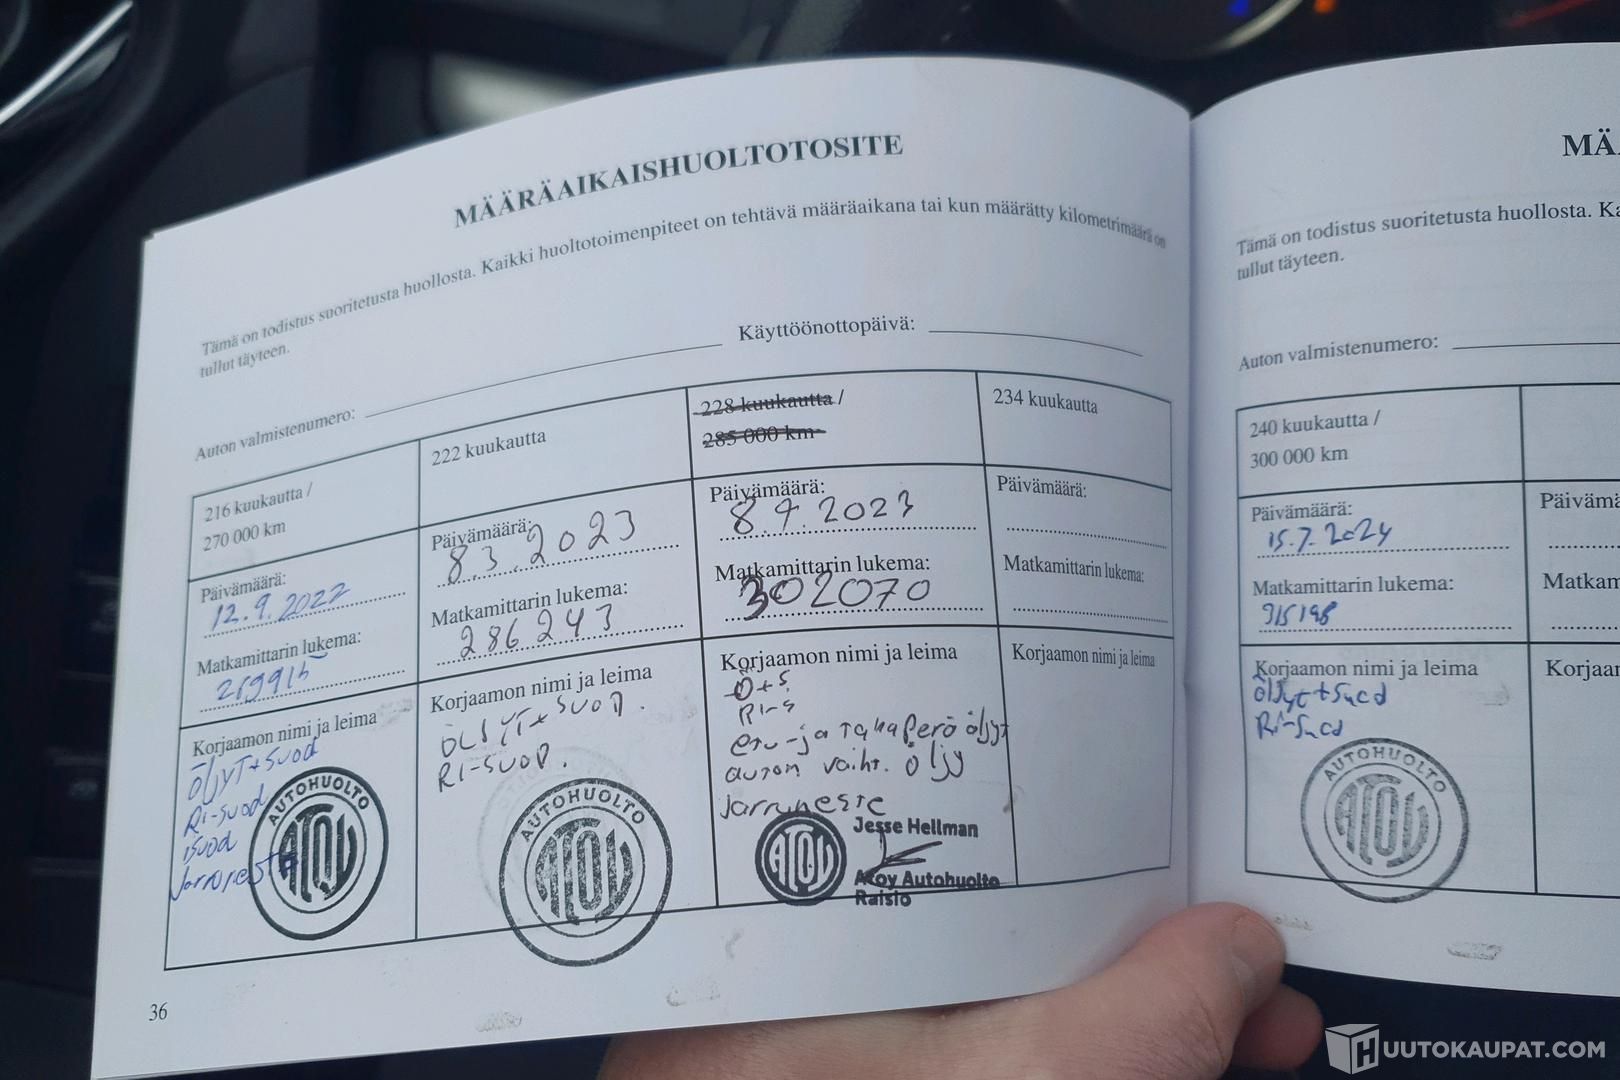 MÄÄRÄAIKAISHUOLTOTOSITE
Tämä on todistus suoritetusta huollosta. Kaikki huoltotoimenpiteet on tehtävä määräaikana tai kun määrätty kilometrimäärä on
tullut täyteen.
Auton valmistenumero: Käyttöönottopäivä:
216 kuukautta /
270 000 km
Päivämäärä:
12.9.2022
Matkamittarin lukema:
Korjaamon nimi ja leima
Öljyt+suod
Ri-suod
isuod
Jarruneste
AUTOHUOLTO
ATOY
222 kuukautta
Päivämäärä:
8.3.2023
Matkamittarin lukema:
286243
Korjaamon nimi ja leima
ÖLJYT+SUOD.
RI-SUOD.
AUTOHUOLTO
ATOY
228 kuukautta /
285 000 km
Päivämäärä:
8.9.2023
Matkamittarin lukema:
302070
Korjaamon nimi ja leima
Ö+S.
RI-S
etu-ja takaperö öljyt
autom vaiht. öljy
Jarruneste
ATOY
Jesse Hellman
Atoy Autohuolto
Raisio
234 kuukautta
Päivämäärä:
Matkamittarin lukema:
Korjaamon nimi ja leima
36
MÄ
Tämä on todistus suoritetusta huollosta. Ka
tullut täyteen.
Auton valmistenumero:
240 kuukautta /
300 000 km
Päivämäärä:
15.7.2024
Matkamittarin lukema:
315198
Korjaamon nimi ja leima
Öljyt+Suod
Ri-Suod
AUTOHUOLTO
ATOY
Päivämä
Matkam
Korjaa
HUUTOKAUPAT.COM